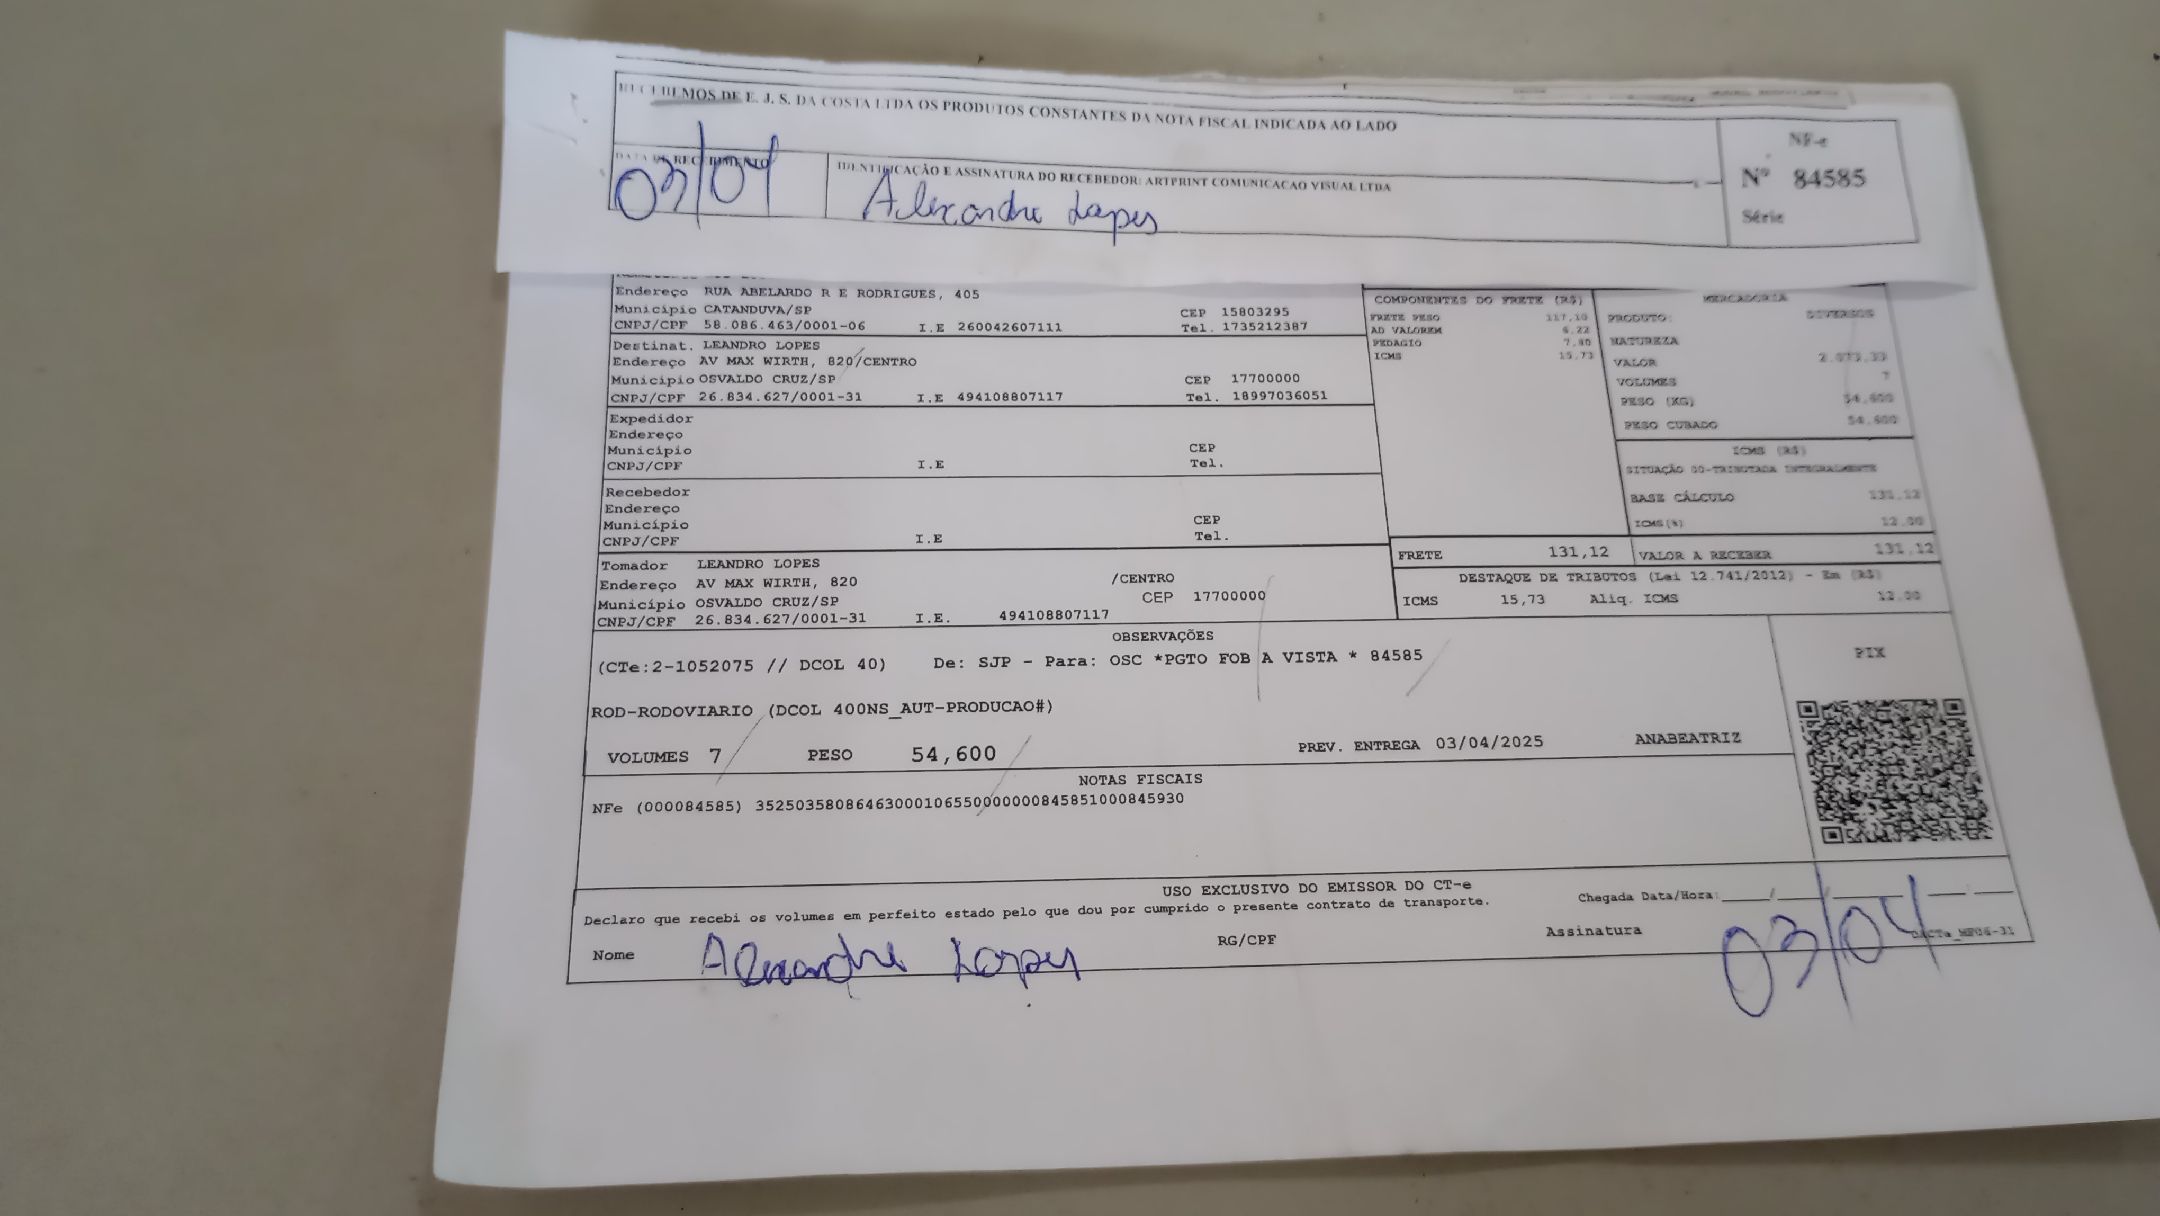 RECEBEMOS DE E. J. S. DA COSTA LTDA OS PRODUTOS CONSTANTES DA NOTA FISCAL INDICADA AO LADO
NF-e
Nº 84585
Série
DATA DE RECEBIMENTO
03/04
IDENTIFICAÇÃO E ASSINATURA DO RECEBEDOR: ARTPRINT COMUNICACAO VISUAL LTDA
Alexandre Lopes
Endereço RUA ABELARDO R E RODRIGUES, 405
Município CATANDUVA/SP CEP 15803295
CNPJ/CPF 58.086.463/0001-06 I.E 260042607111 Tel. 1735212387
Destinat. LEANDRO LOPES
Endereço AV MAX WIRTH, 820/CENTRO
Município OSVALDO CRUZ/SP CEP 17700000
CNPJ/CPF 26.834.627/0001-31 I.E 494108807117 Tel. 18997036051
Expedidor
Endereço
Município CEP
CNPJ/CPF I.E Tel.
Recebedor
Endereço
Município CEP
CNPJ/CPF I.E Tel.
Tomador LEANDRO LOPES
Endereço AV MAX WIRTH, 820 /CENTRO
Município OSVALDO CRUZ/SP CEP 17700000
CNPJ/CPF 26.834.627/0001-31 I.E. 494108807117
COMPONENTES DO FRETE (R$)
FRETE PESO 117,10
AD VALOREM 6,22
PEDAGIO 7,80
ICMS 15,73
MERCADORIA
PRODUTO: DIVERSOS
NATUREZA
VALOR
VOLUMES 7
PESO (KG) 54,600
PESO CUBADO 54,600
ICMS (R$)
SITUAÇÃO 00-TRIBUTADA INTEGRALMENTE
BASE CÁLCULO 131,12
ICMS(%) 12,00
FRETE 131,12 VALOR A RECEBER 131,12
DESTAQUE DE TRIBUTOS (Lei 12.741/2012) - Em (R$)
ICMS 15,73 Aliq. ICMS 12,00
OBSERVAÇÕES
(CTe:2-1052075 // DCOL 40) De: SJP - Para: OSC *PGTO FOB A VISTA * 84585
ROD-RODOVIARIO (DCOL 400NS_AUT-PRODUCAO#)
VOLUMES 7 PESO 54,600 PREV. ENTREGA 03/04/2025 ANABEATRIZ
PIX
NOTAS FISCAIS
NFe (000084585) 35250358086463000106550000000845851000845930
USO EXCLUSIVO DO EMISSOR DO CT-e
Declaro que recebi os volumes em perfeito estado pelo que dou por cumprido o presente contrato de transporte.
Chegada Data/Hora:
Nome Alexandre Lopes RG/CPF Assinatura 03/04